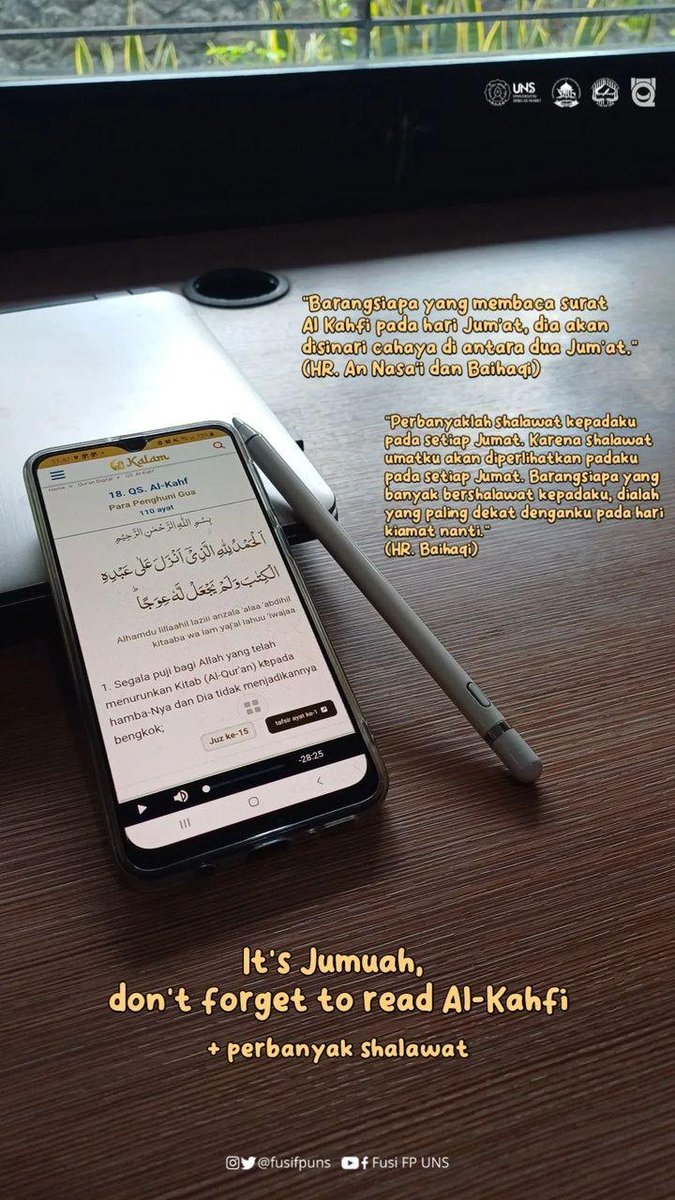 UNS
UNIVERSITAS
SEBELAS MARET
"Barangsiapa yang membaca surat
Al Kahfi pada hari Jum'at, dia akan
disinari cahaya di antara dua Jum'at."
(HR. An Nasa'i dan Baihaqi)
"Perbanyaklah shalawat kepadaku
pada setiap Jumat. Karena shalawat
umatku akan diperlihatkan padaku
pada setiap Jumat. Barangsiapa yang
banyak bershalawat kepadaku, dialah
yang paling dekat denganku pada hari
kiamat nanti."
(HR. Baihaqi)
Kalam
Home > Qur'an Digital > QS. Al-Kahf
18. QS. Al-Kahf
Para Penghuni Gua
110 ayat
بِسْمِ اللّٰهِ الرَّحْمٰنِ الرَّحِيْمِ
اَلْحَمْدُ لِلّٰهِ الَّذِيْٓ اَنْزَلَ عَلٰى عَبْدِهِ
الْكِتٰبَ وَلَمْ يَجْعَلْ لَّهٗ عِوَجًاۜ
Alhamdu lillaahil laziii anzala 'alaa 'abdihil
kitaaba wa lam yaj'al lahuu 'iwajaa
1. Segala puji bagi Allah yang telah
menurunkan Kitab (Al-Qur'an) kepada
hamba-Nya dan Dia tidak menjadikannya
bengkok;
Juz ke-15
tafsir ayat ke-1
-28:25
It's Jumuah,
don't forget to read Al-Kahfi
+ perbanyak shalawat
@fusifpuns
Fusi FP UNS